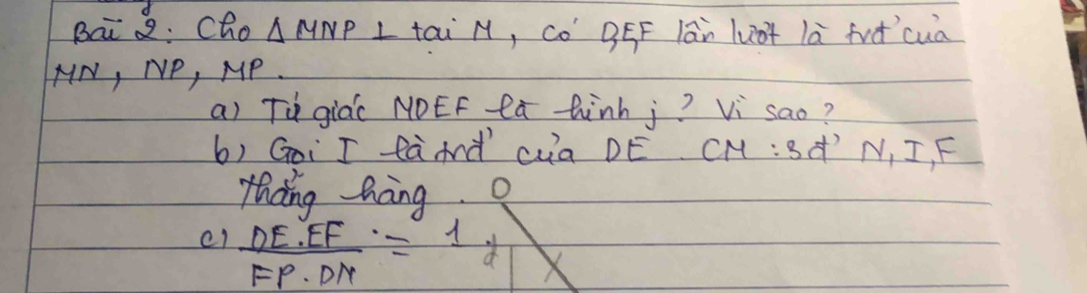 Bài 2: Cho Δ MNP ⊥ tại M, có D,E,F lần lượt là trđ' của
MN, NP, MP.
a) Tứ giác NDEF là hình j? Vì sao?
b) Gọi I là trđ' của DE. CM: 3 đ' N, I, F
thẳng hàng.
c) DE.EF = 1
FP.DN